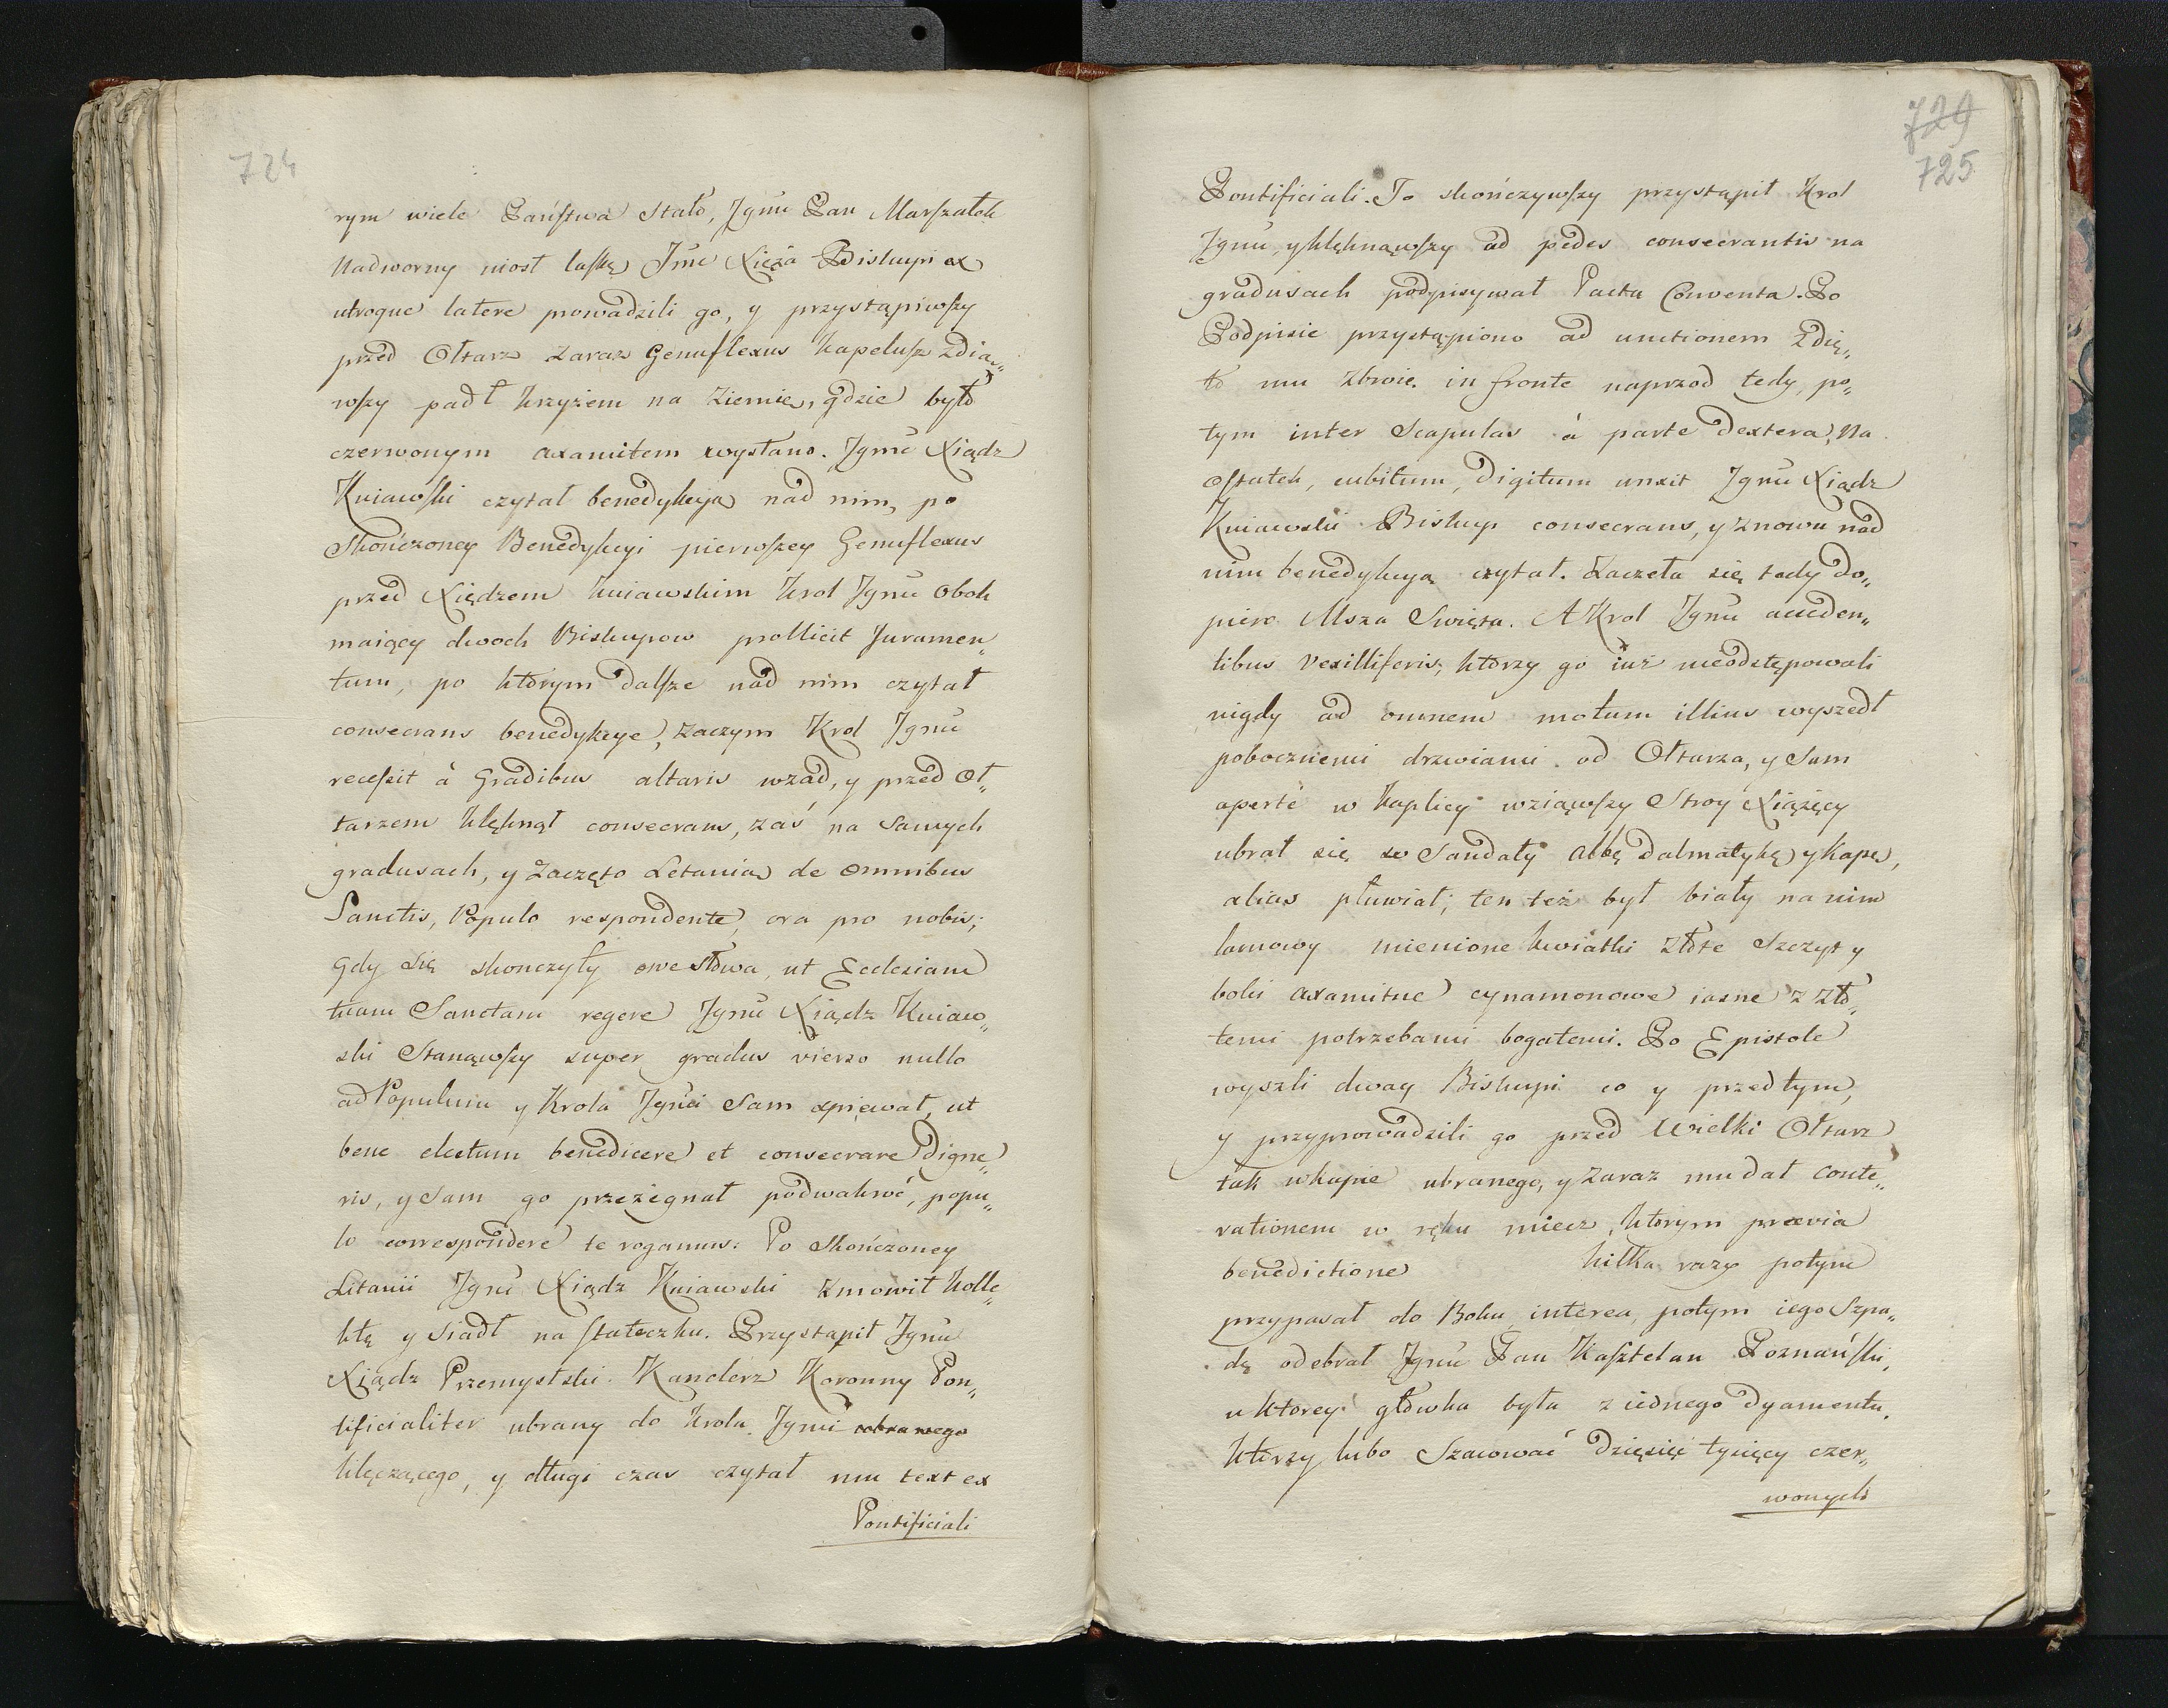 724
rym wiele Państwa stało, Jgmć Pan Marszałek
Nadworny niosł laskę Jmć Xięża Biskupi ex
utroque latere prowadzili go, y przystąpiwszy
przed Ołtarz zaraz Genuflexus kapelusz zdia„
wszy padł krzyżem na Ziemię, gdzie było
czerwonym axamitem wysłano. Jgmć Xiądz
Kuiawski czytał benedykcyą nad nim, po
Skończoney Benedykcyi pierwszey Genuflexus
przed Xiędzem Kuiawskim Krol Jgmć obok
maiący dwoch Biskupow pollicit Juramen„
tum, po którym dalsze nad nim czytał
consecrans benedykcye, zaczym Krol Jgmć
recessit à Gradibus altaris wzad, y przed Oł„
tarzem klęknął consecrans, zaś na samych
gradusach, y zaczęto Letanią de omnibus
Sanctis, Populo respondente, ora pro nobis;
gdy się skonczyły owe słowa, ut Ecclesiam
tuam Sanctam regere Jgmć Xiądz Kuiaw„
ski Stanąwszy super gradus vierso nullo
ad Populum y Krola Jgmći sam spiewał, ut
bene electum benedicere et consecrare Digne„
ris, y sam go przeżegnał podwakroć, popu„
lo correspondere te rogamus: Po skończoney
Litanii Jgmć Xiądz Kuiawski zmowił kolle„
ktę y siadł na stołeczku. Przystąpił Jgmć
Xiądz Przemyslski Kanclerz Koronny Pon„
tificialiter ubrany do Krola Jgmći ubranego
klęczącego, y długi czas czytał mu text ex
Pontificiali
729
725
Pontificiali. To skończywszy przystąpił Krol
Jgmć, y klęknąwszy ad pedes consecrantis na
gradusach podpisywał Pacta Conventa. Po
Podpisie przystąpiono ad unctionem zdię„
to mu zbroię. in fronte naprzod tedy, po„
tym inter Scapulas à parte dextera, na
ostatek, cubitum, digitum unxit Jgmć Xiądz
Kuiawski Biskup consecrans, y znowu nad
nim benedykcyą czytał. Zaczeła się tedy do„
piero Msza Swięta. A Krol Jgmć acceden„
tibus vexilliferis, ktorzy go iuż nieodstępowali
nigdy ad omnem motum illius wyszedł
pobocznemi drzwiami od Ołtarza, y sam
aperte w kaplicy wziąwszy Stroy Xiążęcy
ubrał się w Sandały albę dalmatykę y kapę,
alias pluwiał; ten też był biały na nim
lamowy mienione kwiatki złote Szczyt y
boki axamitne cynamonowe iasne z zło„
temi potrzebami bogatemi. Po Epistole
wyszli dway Biskupi co y przedtym,
y przyprowadzili go przed Wielki Ołtarz
tak w kapie ubranego, y zaraz mu dał conte„
rationem w ręku miecz, ktorym prævia
benedictione kilka razy potym
przypasał do Boku, interea, potym iego Szpa„
dę odebrał Jgmć Pan Kasztelan Poznański,
u ktorey głowka była z iednego Dyamentu,
ktorzy lubo Szacować Dzięsięć tysięcy czer„
wonych